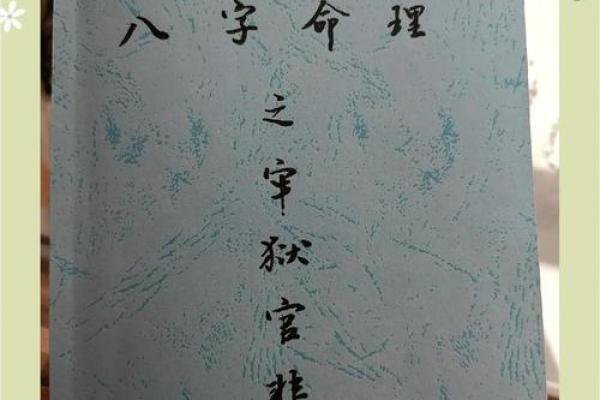 八字命理
之牢狱官非